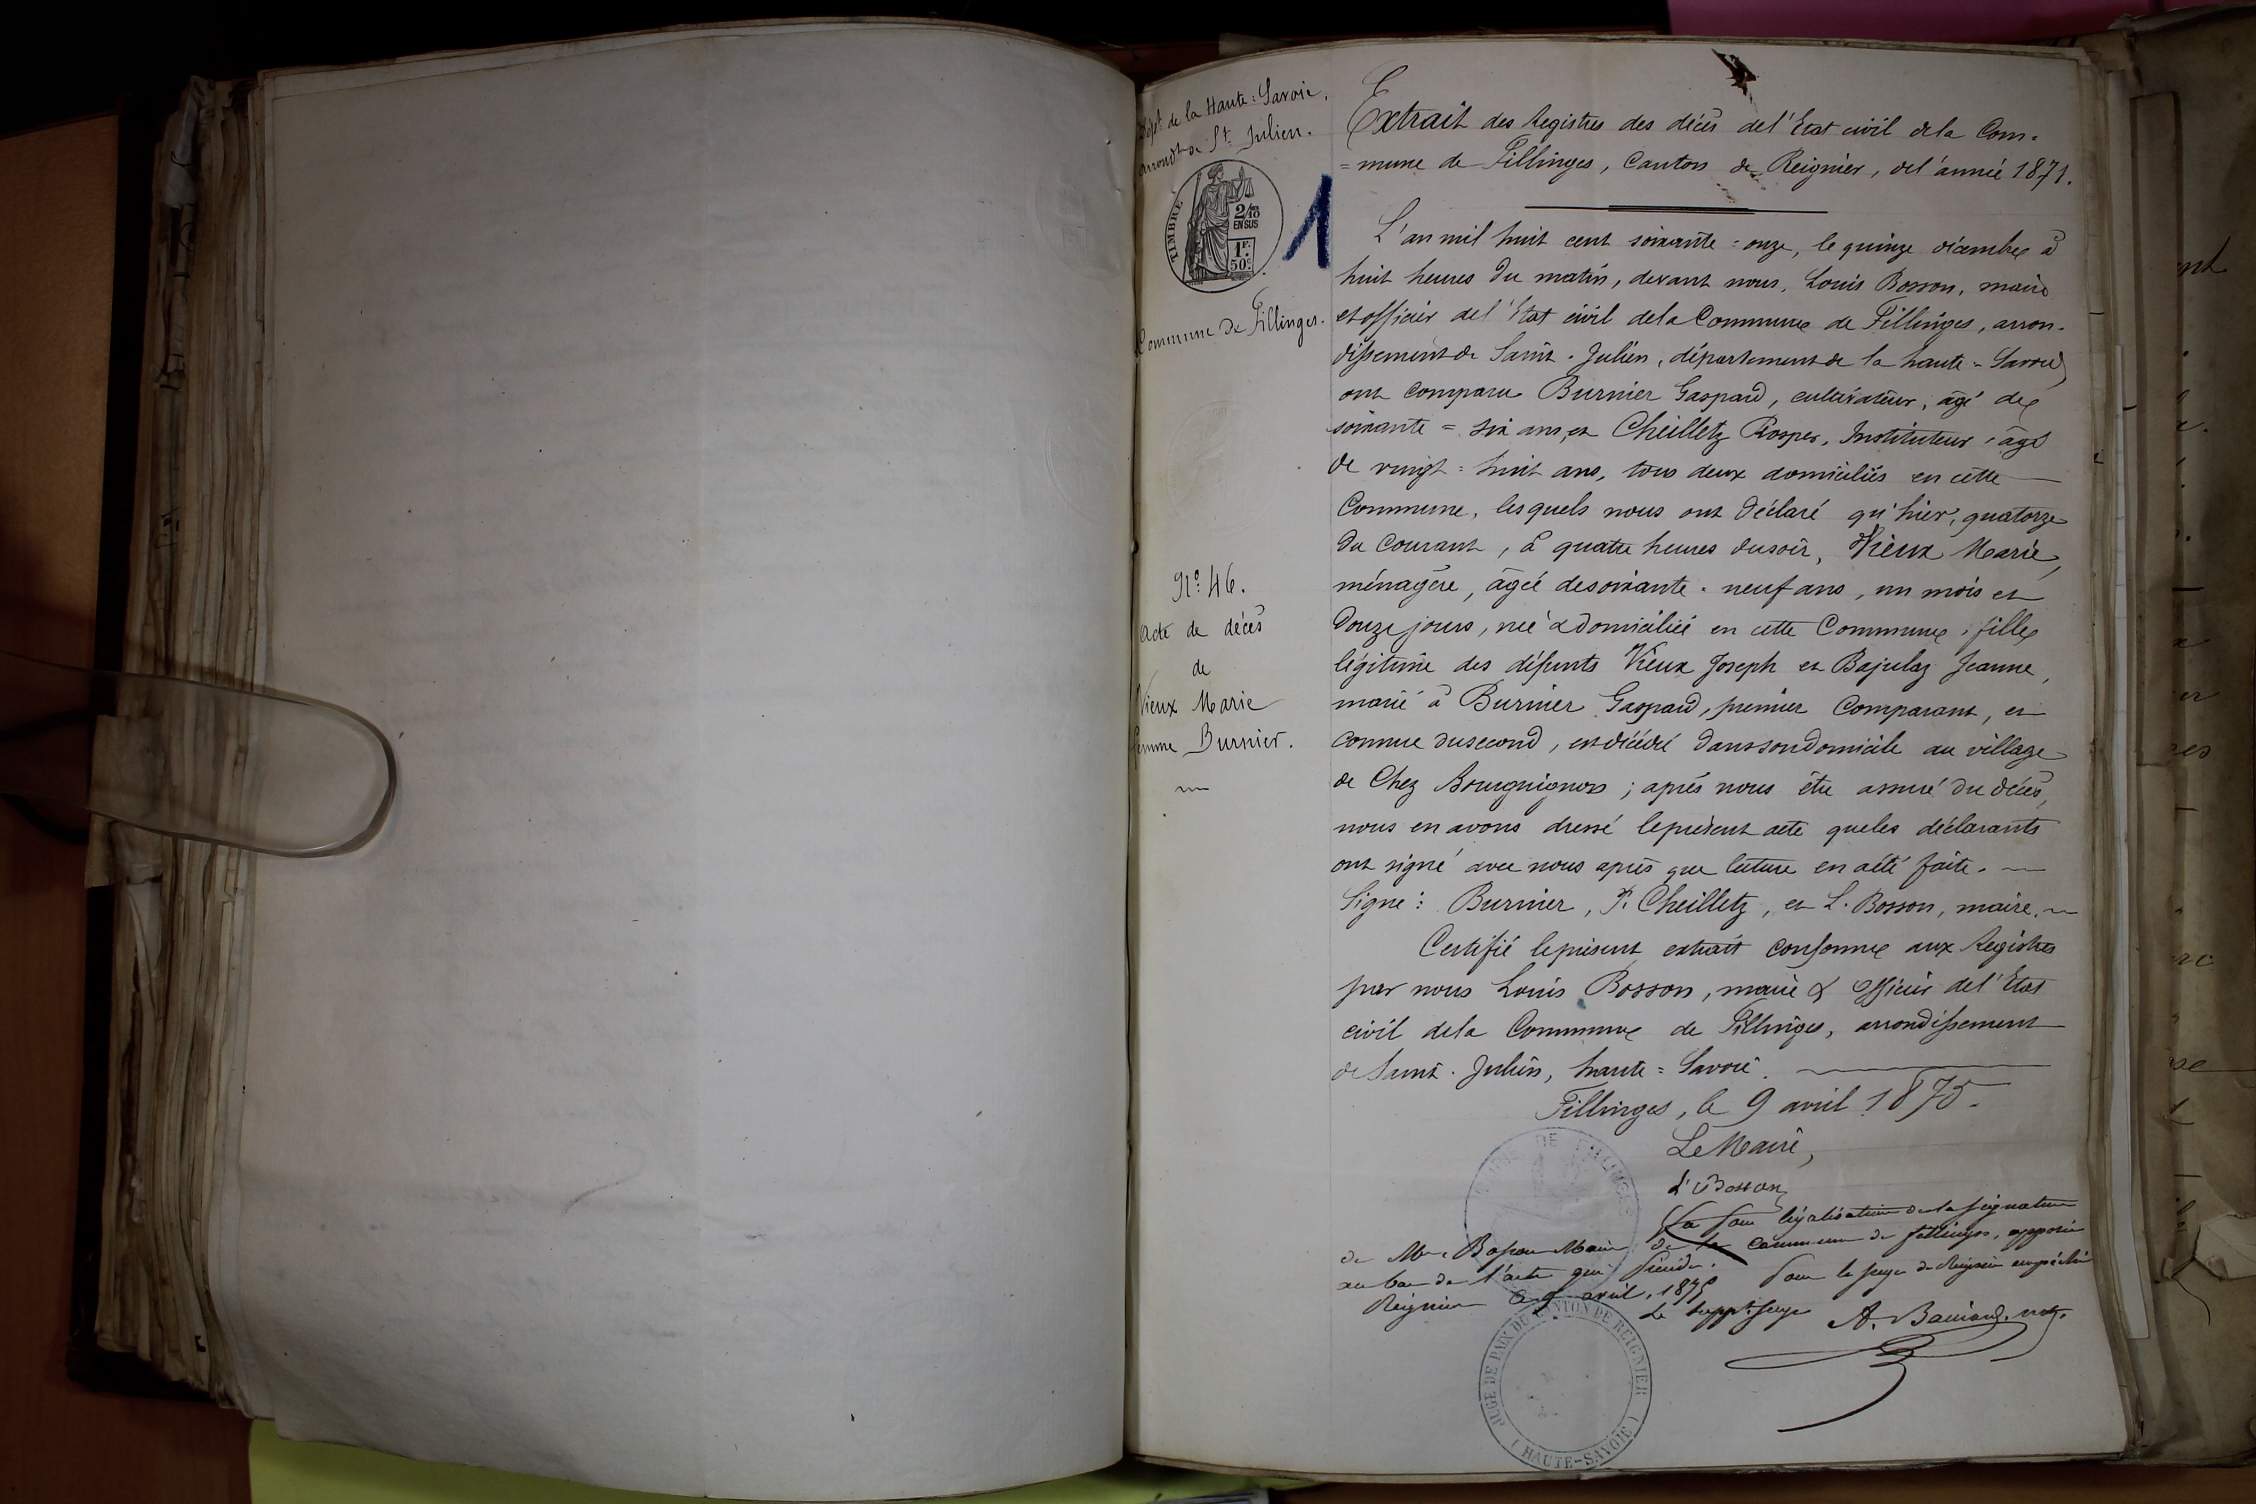 Dépt de la Haute=Savoie.
arrondt de St Julien.
TIMBRE
2/10
EN SUS
1F.
50c.
1
Commune de Fillinges.
No 46.
Acte de décès
de
Vieux Marie
femme Burnier.
Extrait des Registres des décès de l'Etat civil de la Com-
=mune de Fillinges, Canton de Reignier, de l'année 1871.
L'an mil huit cent soixante=onze, le quinze décembre à
huit heures du matin, devant nous, Louis Bosson, maire
et officier de l'Etat civil de la Commune de Fillinges, arron-
dissement de Saint-Julien, département de la haute=Savoie
ont comparu Burnier Gaspard, cultivateur, âgé de
soixante=six ans, et Cheilletz Prosper, Instituteur, âgé
de vingt=huit ans, tous deux domiciliés en cette
Commune, lesquels nous ont déclaré qu'hier, quatorze
du Courant, à quatre heures du soir, Vieux Marie,
ménagère, âgée de soixante-neuf ans, un mois et
douze jours, née & domiciliée en cette Commune, fille
légitime des défunts Vieux Joseph et Bajulaz Jeanne,
marié à Burnier Gaspard, premier Comparant, et
connue du second, est décédé dans son domicile au village
de Chez Bourguignon ; après nous être assuré du décès,
nous en avons dressé le présent acte que les déclarants
ont signé avec nous après que lecture en a été faite.
Signé : Burnier, P. Cheilletz, et L. Bosson, maire.
Certifié le présent extrait conforme aux Registres
par nous Louis Bosson, maire & officier de l'Etat
civil de la Commune de Fillinges, arrondissement
de Saint-Julien, haute=Savoie.
Fillinges, le 9 avril 1875.
Le Maire,
L. Bosson
Vu pour légalisation de la signature
de Mr. Bosson Maire de la commune de fillinges, apposée
au bas de l'acte qui précède.
Reignier le 9 avril, 1875
Pour le juge de Reignier empêché
Le suppt. juge
MAIRIE DE FILLINGES
JUGE DE PAIX DU CANTON DE REIGNIER
(HAUTE-SAVOIE)